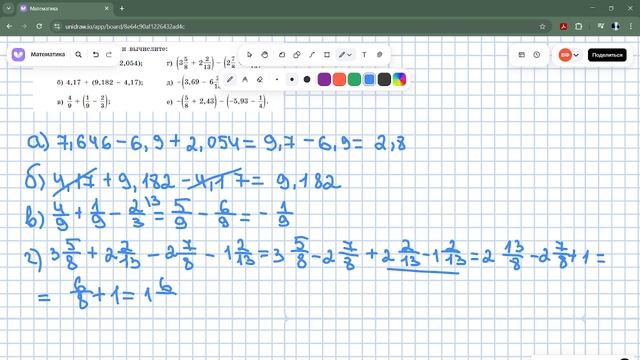 Математика
unidraw.io/app/board/8e64c90af1226432ad4c
Математика
Поделиться
и вычислите:
2,054);
г) (3 5/8 + 2 2/13) − (2 7/8
б) 4,17 + (9,182 − 4,17);
д) −(3,69 − 6
в) 4/9 + (1/9 − 2/3);
е) −(5/8 + 2,43) − (−5,93 − 1/4).
а) 7,646 − 6,9 + 2,054 = 9,7 − 6,9 = 2,8
б) 4,17 + 9,182 − 4,17 = 9,182
в) 4/9 + 1/9 − 2/3 \3 = 5/9 − 6/9 = − 1/9
г) 3 5/8 + 2 2/13 − 2 7/8 − 1 2/13 = 3 5/8 − 2 7/8 + 2 2/13 − 1 2/13 = 2 13/8 − 2 7/8 + 1 =
= 6/8 + 1 = 1 6